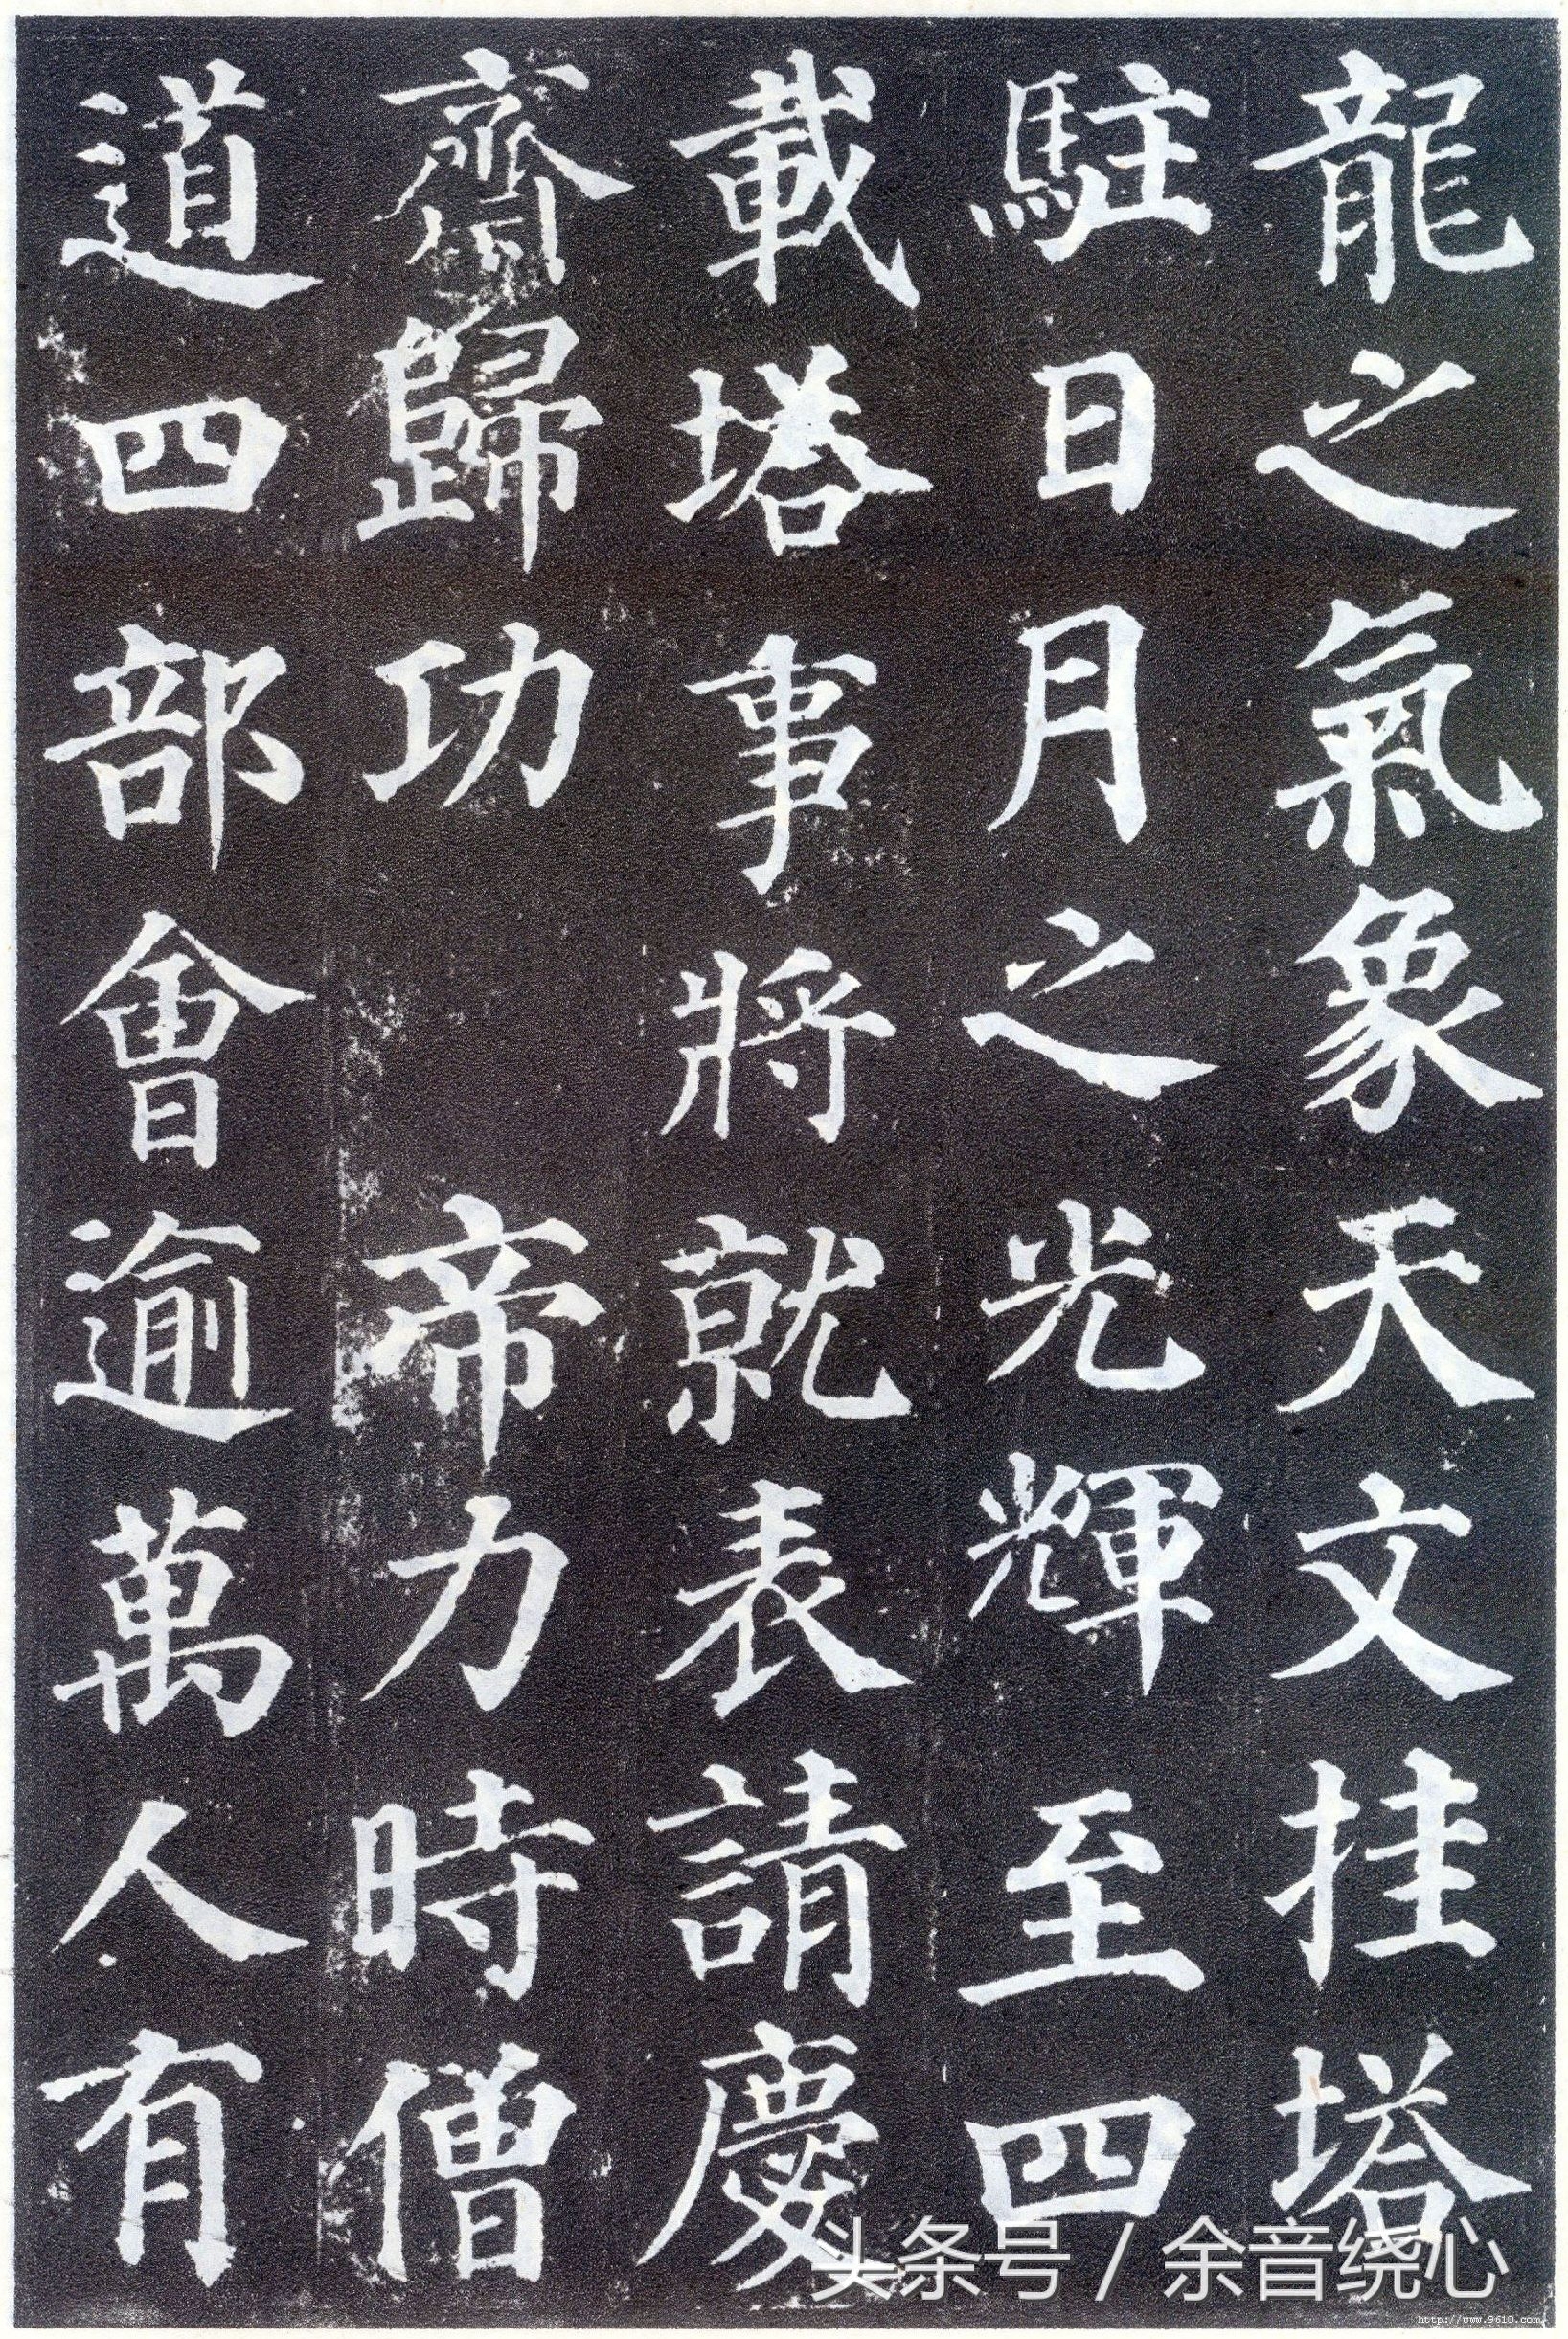 龍之氣象天文挂塔
駐日月之光輝至四
載塔事將就表請慶
齋歸功帝力時僧
道四部會逾萬人有
头条号 / 余音绕心
http://www.9610.com